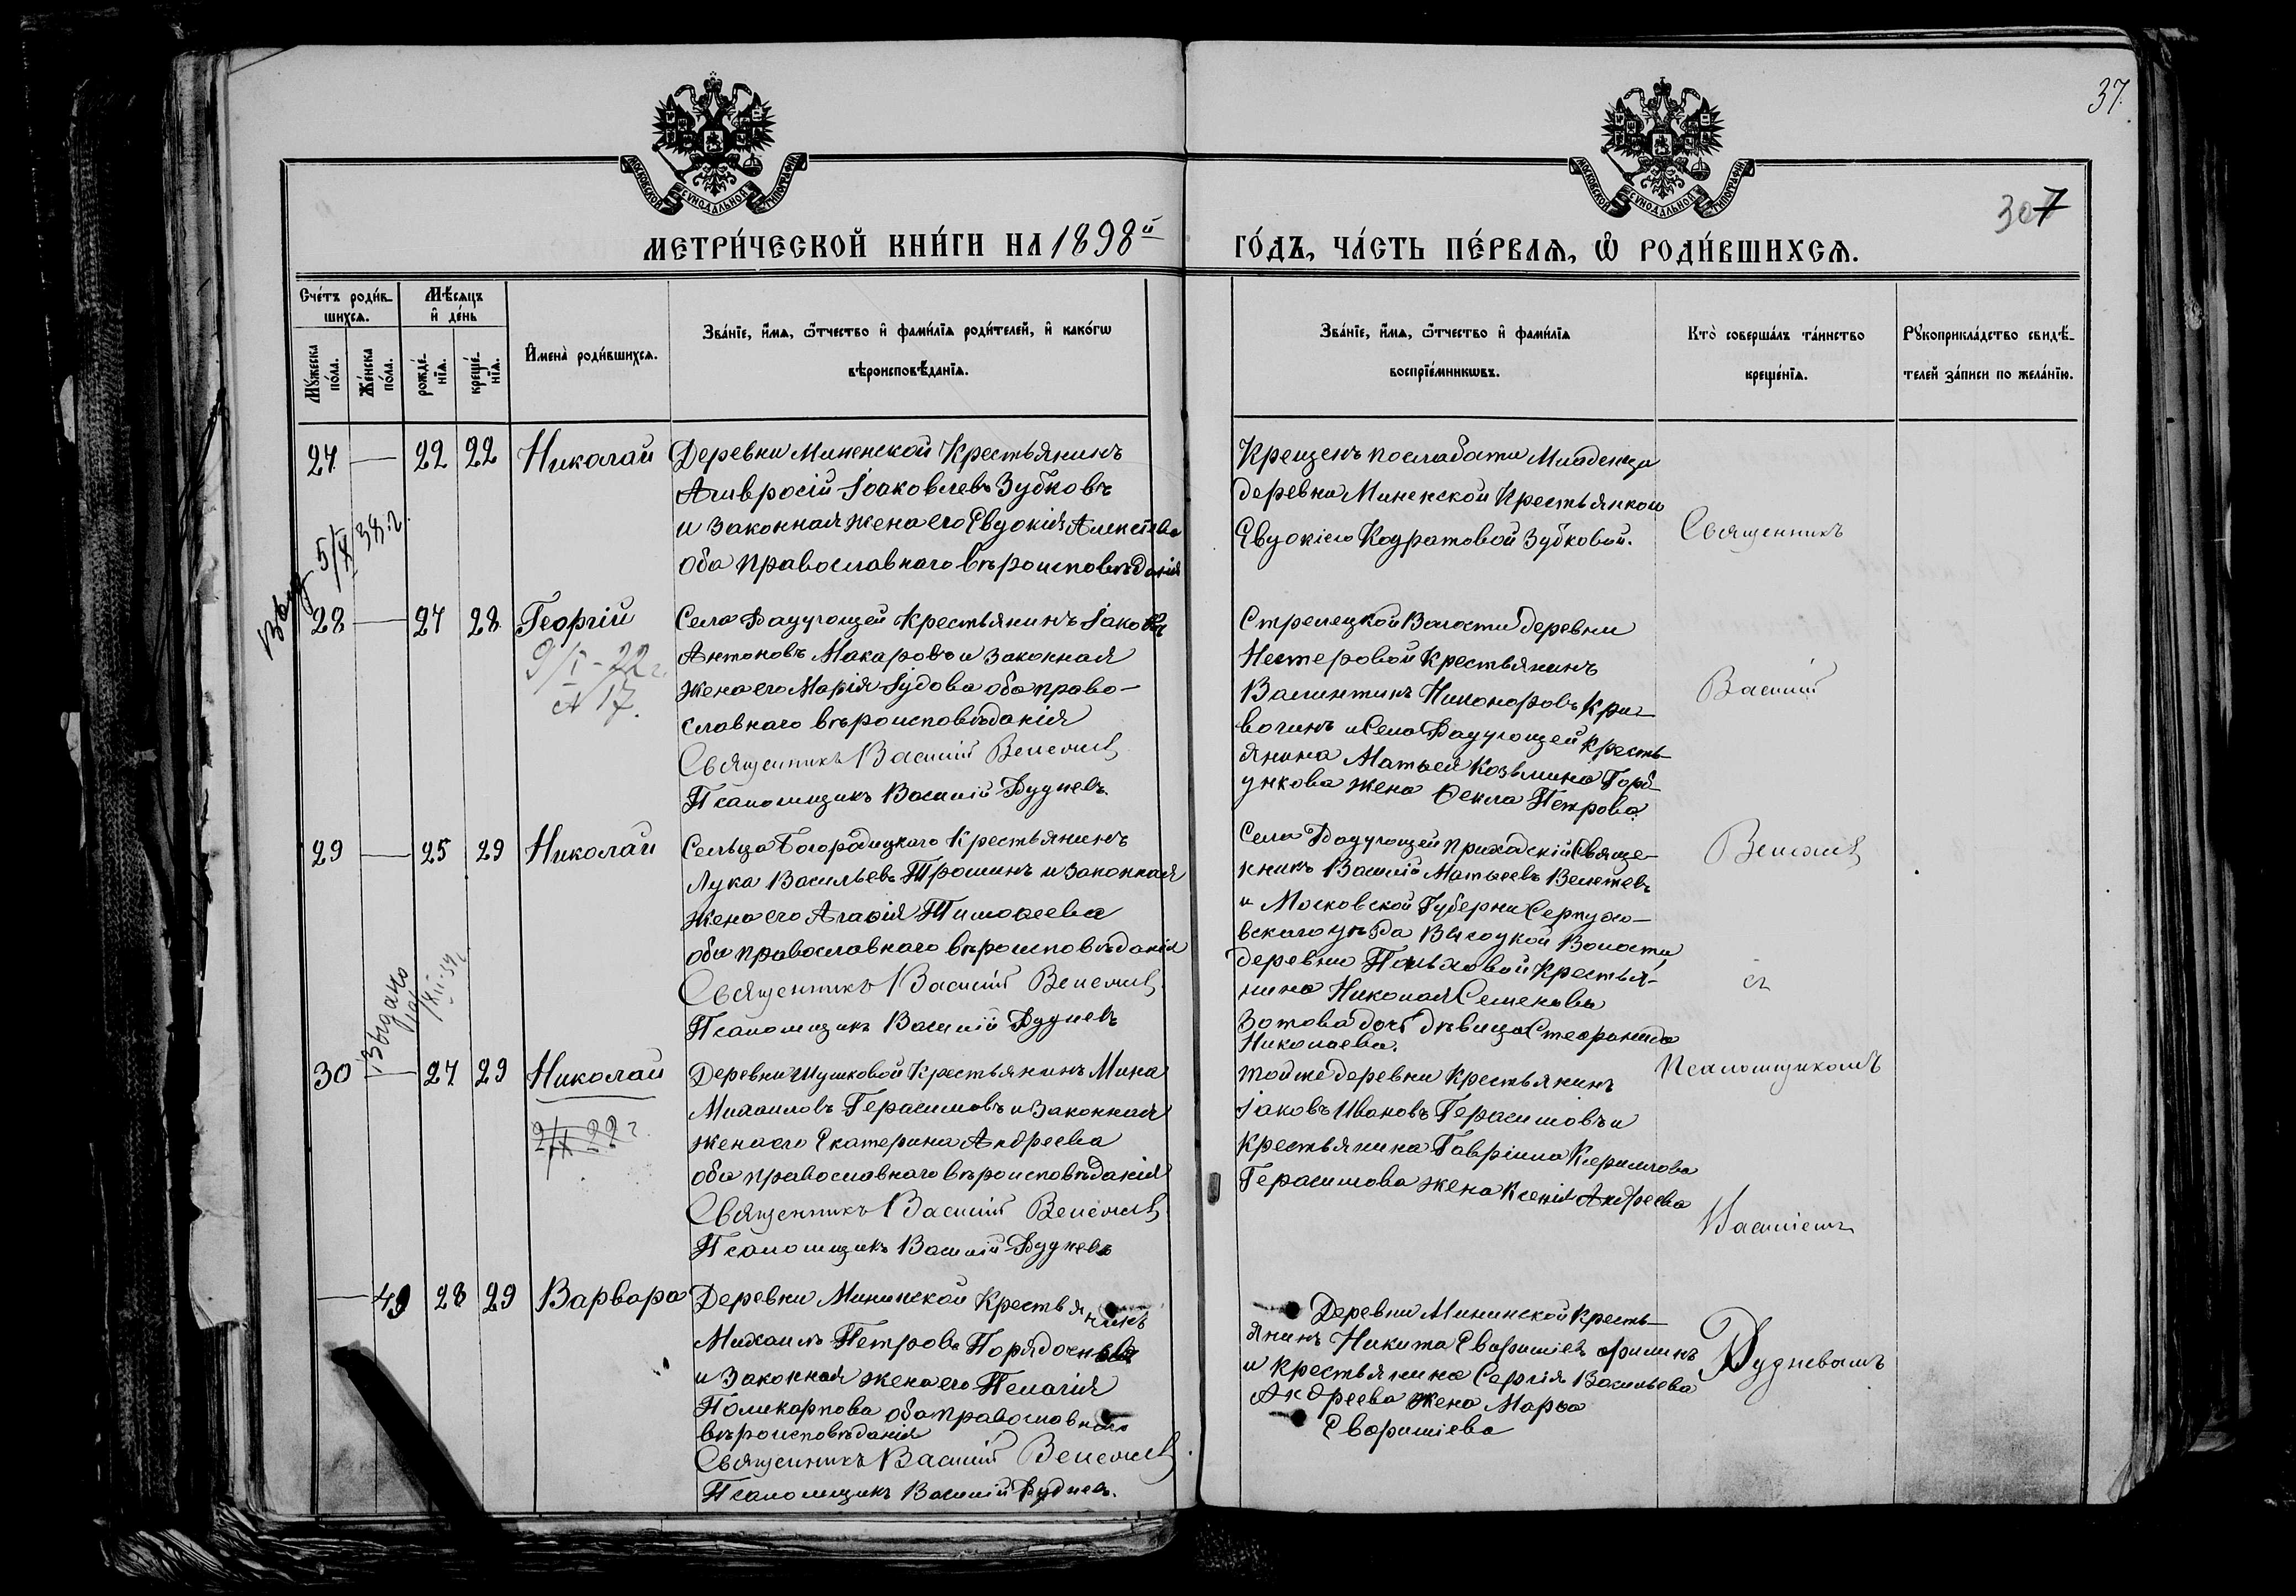 37.
307
МОСКОВСКОЙ СУНОДАЛЬНОЙ ТИПОГРАФІИ
МОСКОВСКОЙ СУНОДАЛЬНОЙ ТИПОГРАФІИ
МЕТРИ́ЧЕСКОЙ КНИ́ГИ НА 1898й
ГО́ДЪ, ЧА́СТЬ ПЕ́РВАѦ, Ѽ РОДИ́ВШИХСѦ.
Сче́тъ роди́в-
шихсѧ.
Мѣ́сѧцъ
и҆ де́нь
Мꙋ́жеска
по́ла.
Же́нска
по́ла.
рожде́-
нїѧ.
креще́-
нїѧ.
И҆мена̀ роди́вшихсѧ.
Зва́нїе, и҆́мѧ, ѻ҆́тчество и҆ фами́лїѧ роди́телей, и҆ како́гѡ
вѣроисповѣ́данїѧ.
Зва́нїе, и҆́мѧ, ѻ҆́тчество и҆ фами́лїѧ
воспрїе́мникѡвъ.
Кто̀ соверша́лъ та́инство
креще́нїѧ.
Рꙋкоприкла́дство свидѣ́-
телей за́писи по жела́нїю.
27 — 22 22 Николай
Деревни Мининской Крестьянинъ
Амвросій Іоаковлевъ Зубковъ
и законная жена его Евдокія
оба православнаго вѣроисповѣданія
Крещенъ по слабости Младенца
деревни Мининской Крестьянкою
Евдокіею Кодратовой Зубковой.
5/X 38 г.
28 — 27 28 Георгій
9/I - 22 г.
№ 17.
Села Крестьянинъ Іаковъ
Антоновъ Макаровъ и законная
жена его Марія Іудова оба право-
славнаго вѣроисповѣданія
Священникъ Василій
Псаломщикъ Василій Рудневъ
Стрелецкой Волости деревни
Нестеровой Крестьянинъ
Валентинъ Никоноровъ Кри-
вогинъ и Села Кресть-
янина Матвея Козьмина Горб-
ункова жена Ѳекла Петрова
29 — 25 29 Николай
Сельца Богородицкаго Крестьянинъ
Лука Васильевъ Трошинъ и законная
жена его Агафія Тимоѳеева
оба православнаго вѣроисповѣданія
Священникъ Василій
Псаломщикъ Василій Рудневъ
Села Приходскій Свяще-
нникъ Василій Матвеевъ
и Московской Губерни Серпухо-
вскаго уѣзда Высоцкой Волости
деревни Крестья-
нина Николая Семенова
Зотова дочь дѣвица Стефанида
Николаева.
Выдано
30 — 27 29 Николай
2/IX 22 г.
Деревни Шушковой Крестьянинъ Мина
Михаиловъ Герасимовъ и законная
жена его Екатерина Андреева
оба православнаго вѣроисповѣданія
Священникъ Василій
Псаломщикъ Василій Рудневъ
тойже деревни Крестьянинъ
Іаковъ Ивановъ Герасимовъ и
крестьянина Гавріила
Герасимова жена Ксенія Андреева
— 49 28 29 Варвара
Деревни Мининской Крестьянинъ
Михаилъ Петровъ
и законная жена его Пелагія
Поликарпова оба православнаго
вѣроисповѣданія
Священникъ Василій
Псаломщикъ Василій Рудневъ.
Деревни Мининской Кресть-
янинъ Никита
и крестьянина Сергія Васильева
Андреева жена Марѳа
Священникъ
Василій
съ
Псаломщикомъ
Василіемъ
Рудневымъ